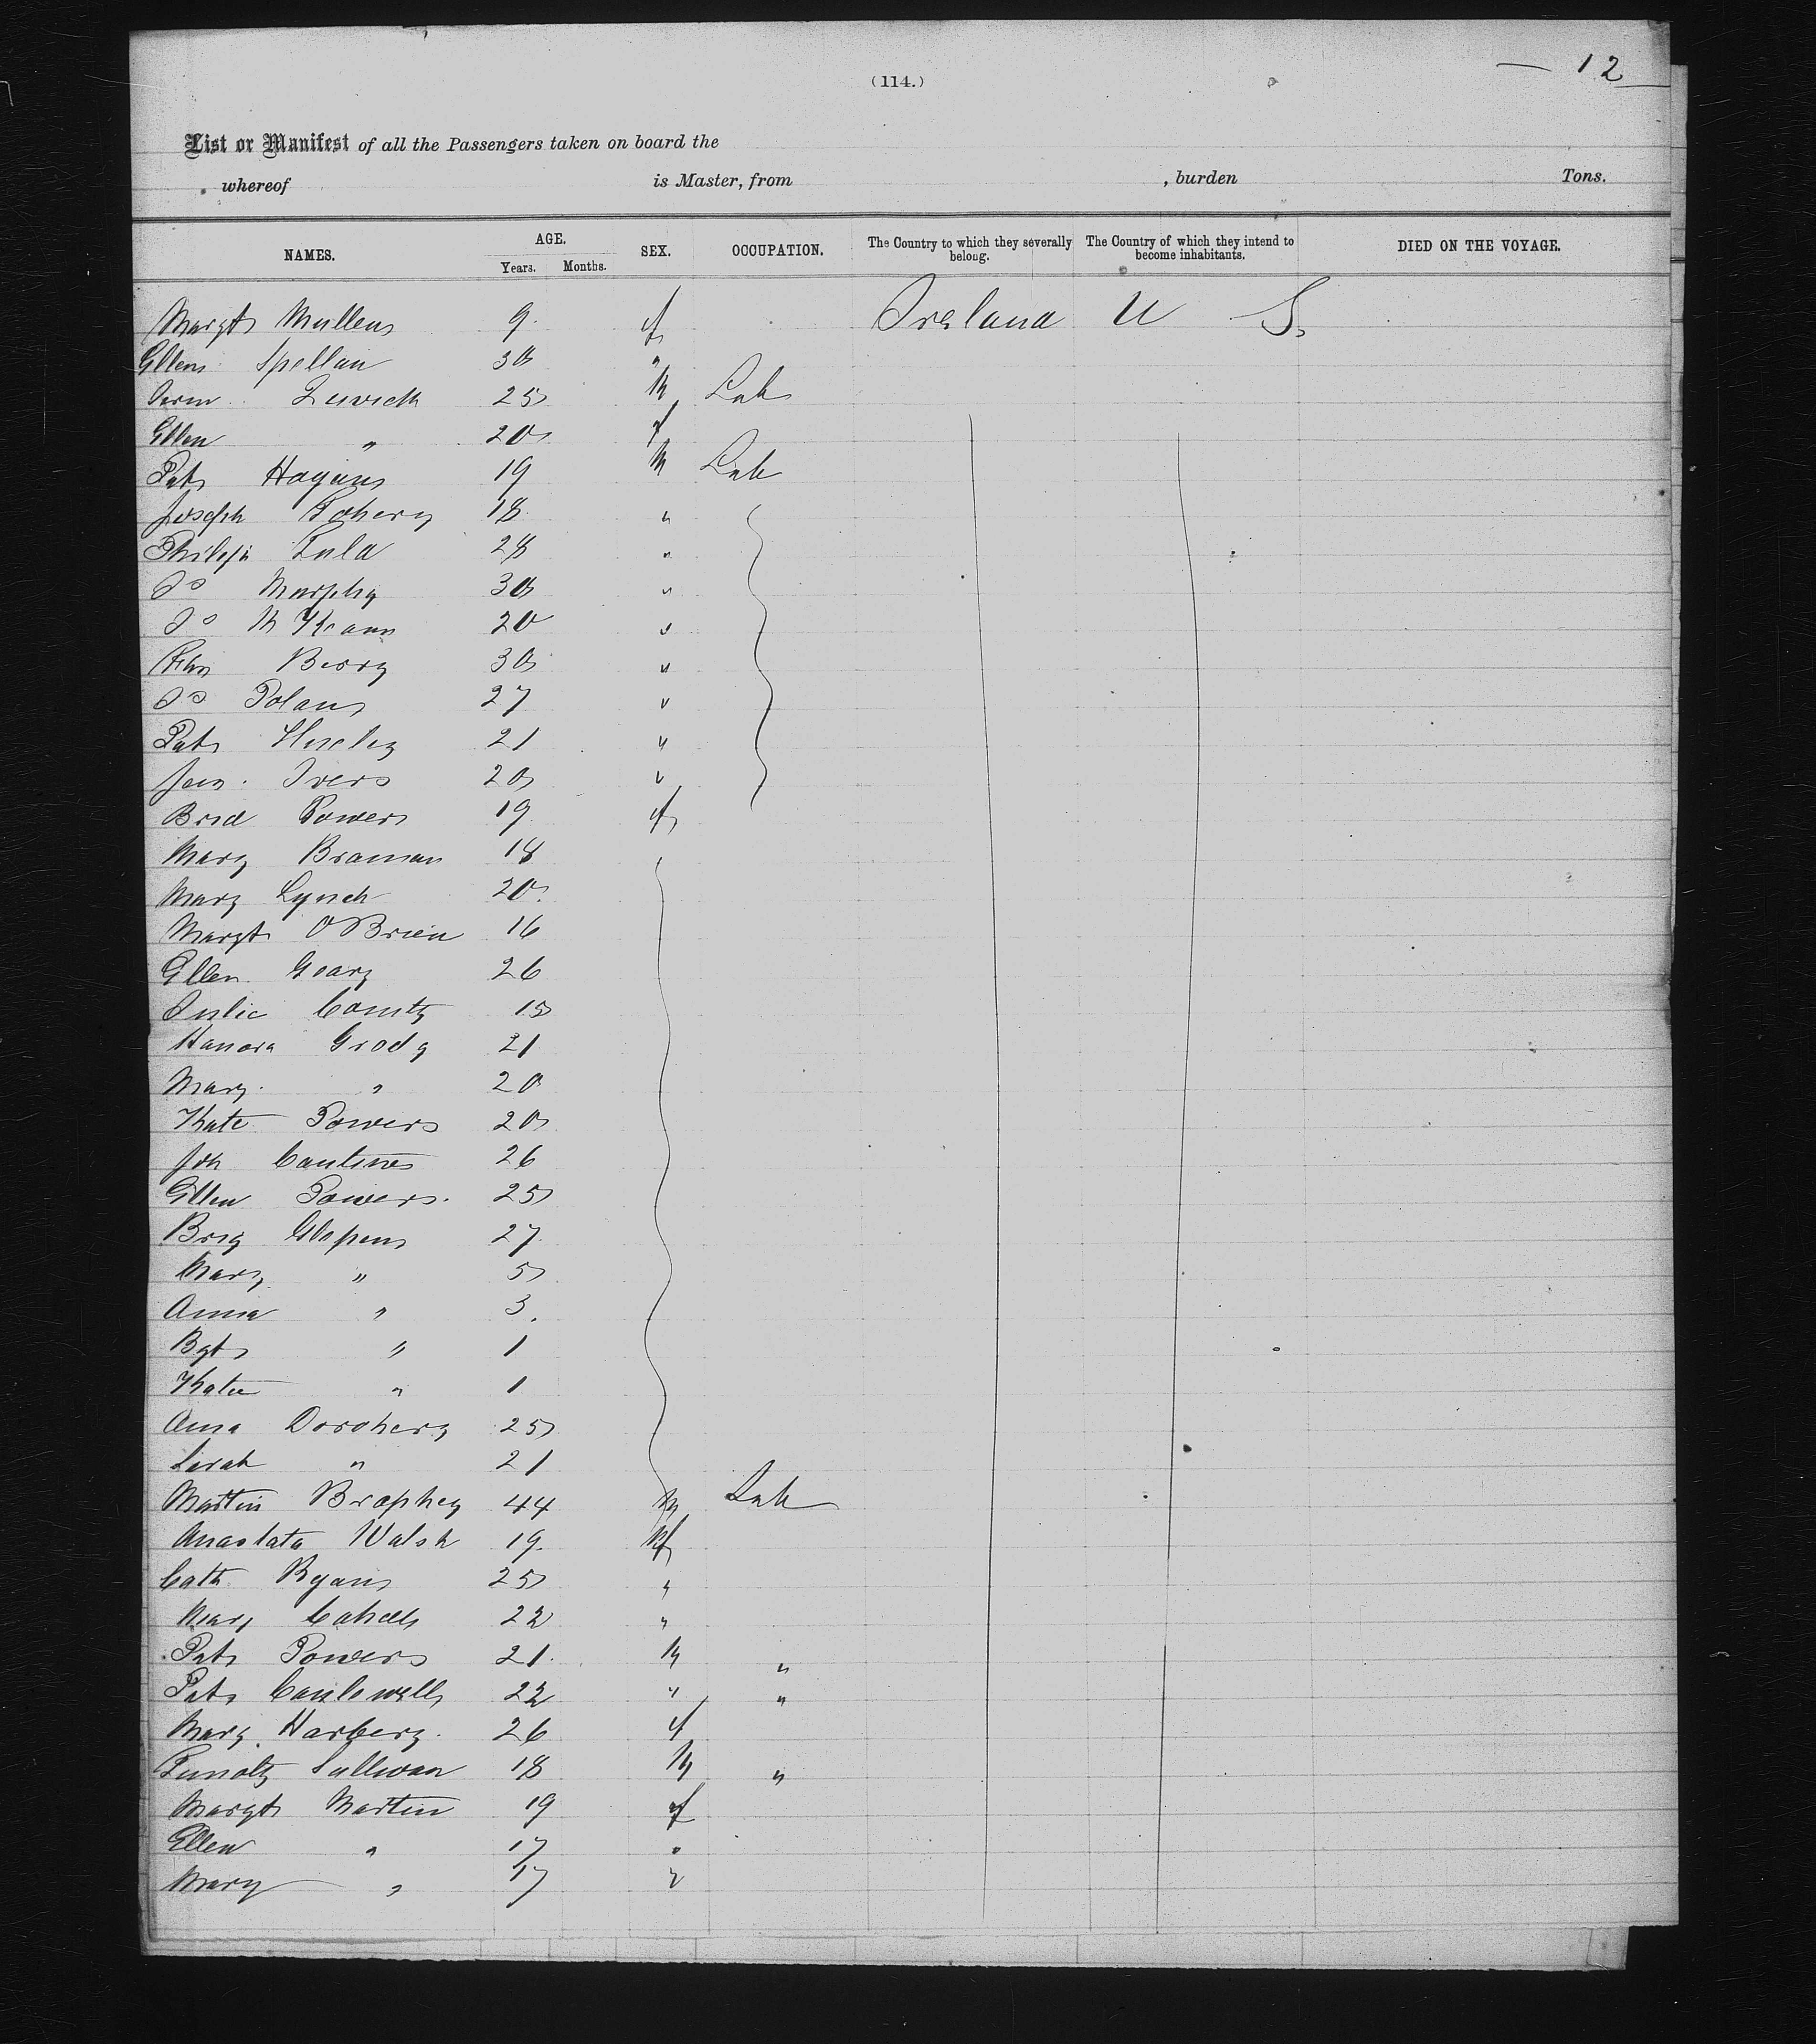 (114.)
12
List or Manifest of all the Passengers taken on board the
whereof is Master, from , burden Tons.
NAMES. AGE. Years. Months. SEX. OCCUPATION. The Country to which they severally belong. The Country of which they intend to become inhabitants. DIED ON THE VOYAGE.
Margt Mullens 9 f Ireland U S
Ellen Spellan 30 "
25 M Lab
Ellen " 20 f
Pat Hagans 19 M Lab
Joseph 18 "
Philip 28 "
Murphy 30 "
20 "
Berry 30 "
Polan 27 "
Pat 21 "
Ivers 20 "
Brid Powers 19 f
Mary Branan 18
Mary Lynch 20
Margt OBrien 16
Ellen Geary 26
Julie 15
Hanora Grody 21
Mary " 20
Kate Powers 20
26
Ellen Powers 25
27
Mary " 5
Anna " 3
Bgt " 1
Katie " 1
Anna Dorohery 25
Sarah " 21
Martin Brophey 44 M Lab
Anastata Walsh 19 f
Cath Ryan 25 "
Mary Cahill 22 "
Pat Powers 21 M "
Pat 22 " "
Mary Harbery 26 f
Sullivan 18 M "
Margt Martin 19 f
Ellen " 17 "
Mary " 17 "